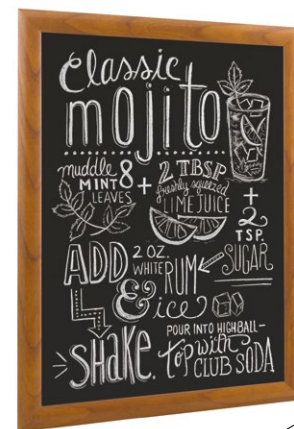 Classic
mojito
muddle 8 MINT LEAVES
+
2 TBSP
freshly squeezed
LIME JUICE
+
2
TSP.
SUGAR
ADD 2 OZ.
WHITE RUM
& ice
SHAKE.
POUR INTO HIGHBALL–
top with
CLUB SODA